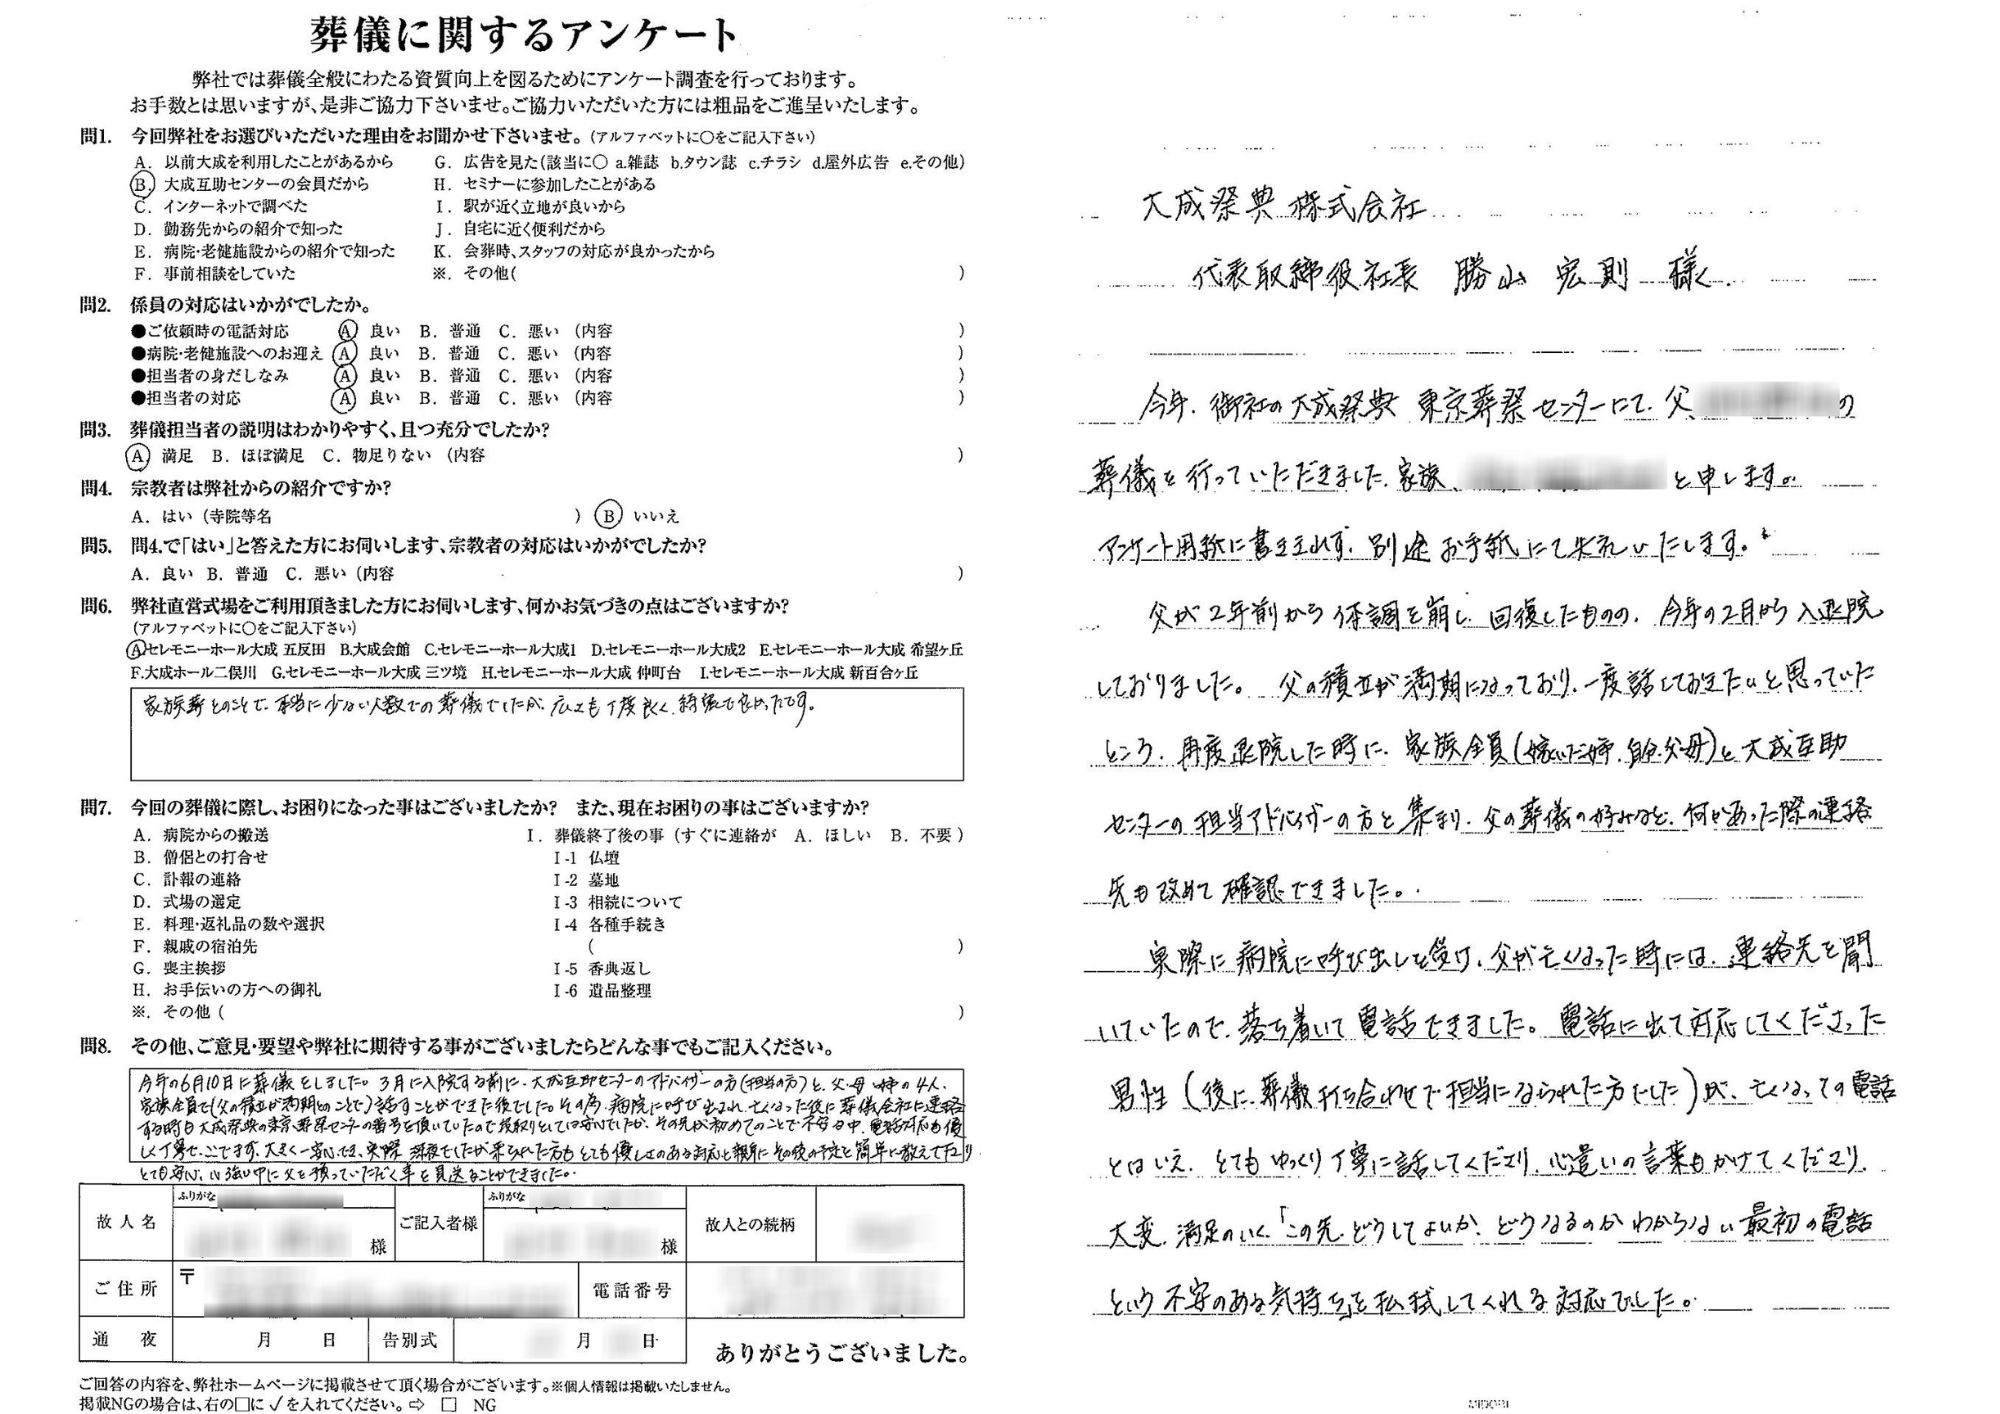 葬儀に関するアンケート
弊社では葬儀全般にわたる資質向上を図るためにアンケート調査を行っております。
お手数とは思いますが、是非ご協力下さいませ。ご協力いただいた方には粗品をご進呈いたします。
問1. 今回弊社をお選びいただいた理由をお聞かせ下さいませ。(アルファベットに○をご記入下さい)
A. 以前大成を利用したことがあるから G. 広告を見た(該当に○ a.雑誌 b.タウン誌 c.チラシ d.屋外広告 e.その他)
B. 大成互助センターの会員だから H. セミナーに参加したことがある
C. インターネットで調べた I. 駅が近く立地が良いから
D. 勤務先からの紹介で知った J. 自宅に近く便利だから
E. 病院・老健施設からの紹介で知った K. 会葬時、スタッフの対応が良かったから
F. 事前相談をしていた ※. その他( )
問2. 係員の対応はいかがでしたか。
●ご依頼時の電話対応 A 良い B. 普通 C. 悪い (内容 )
●病院・老健施設へのお迎え A 良い B. 普通 C. 悪い (内容 )
●担当者の身だしなみ A 良い B. 普通 C. 悪い (内容 )
●担当者の対応 A 良い B. 普通 C. 悪い (内容 )
問3. 葬儀担当者の説明はわかりやすく、且つ充分でしたか?
A 満足 B. ほぼ満足 C. 物足りない (内容 )
問4. 宗教者は弊社からの紹介ですか?
A. はい (寺院等名 ) B いいえ
問5. 問4.で「はい」と答えた方にお伺いします、宗教者の対応はいかがでしたか?
A. 良い B. 普通 C. 悪い (内容 )
問6. 弊社直営式場をご利用頂きました方にお伺いします、何かお気づきの点はございますか?
(アルファベットに○をご記入下さい)
Aセレモニーホール大成 五反田 B.大成会館 C.セレモニーホール大成1 D.セレモニーホール大成2 E.セレモニーホール大成 希望ヶ丘
F.大成ホール二俣川 G.セレモニーホール大成 三ツ境 H.セレモニーホール大成 仲町台 I.セレモニーホール大成 新百合ヶ丘
家族葬とのことで、本当に少ない人数での葬儀でしたが、広さも丁度良く、綺麗で良かったです。
問7. 今回の葬儀に際し、お困りになった事はございましたか? また、現在お困りの事はございますか?
A. 病院からの搬送 I. 葬儀終了後の事 (すぐに連絡が A. ほしい B. 不要)
B. 僧侶との打合せ I-1 仏壇
C. 訃報の連絡 I-2 墓地
D. 式場の選定 I-3 相続について
E. 料理・返礼品の数や選択 I-4 各種手続き
F. 親戚の宿泊先 ( )
G. 喪主挨拶 I-5 香典返し
H. お手伝いの方への御礼 I-6 遺品整理
※. その他 ( )
問8. その他、ご意見・要望や弊社に期待する事がございましたらどんな事でもご記入ください。
今年の6月10日に葬儀をしました。3月に入院する前に、大成互助センターのアドバイザーの方(担当の方)と、父・母・姉の4人、
家族全員で(父の積立が満期とのことで)話すことができた後でした。その為、病院に呼び出され、亡くなった後に葬儀会社に連絡
する時も大成祭典の東京葬祭センターの番号を頂いていたので段取りとしては安心でしたが、その先が初めてのことで不安な中、電話対応も優
しく丁寧で、ここでまず、大きく一安心でき、実際、深夜でしたが来られた方もとても優しさのある対応と親身にその後の予定を簡単に教えて下さり
とても安心、心強い中に父を預っていただく事を見送ることができました。
ふりがな ふりがな
故人名 様 ご記入者様 様 故人との続柄
ご住所 〒 電話番号
通夜 月 日 告別式 月 日
ありがとうございました。
ご回答の内容を、弊社ホームページに掲載させて頂く場合がございます。※個人情報は掲載いたしません。
掲載NGの場合は、右の□に✓を入れてください。⇨ □ NG
大成祭典株式会社
代表取締役社長 勝山 宏則 様
今年、御社の大成祭典 東京葬祭センターにて、父、の
葬儀を行っていただきました、家族、と申します。
アンケート用紙に書ききれず、別途お手紙にて失礼いたします。
父が2年前から体調を崩し、回復したものの、今年の2月から入退院
しておりました。父の積立が満期になっており、一度話しておきたいと思っていた
ところ、再度退院した時に、家族全員(嫁いだ姉、自分、父母)と大成互助
センターの担当アドバイザーの方と集まり、父の葬儀の好みなど、何かあった際の連絡
先も改めて確認できました。
実際に病院に呼び出しを受け、父が亡くなった時には、連絡先を聞
いていたので、落ち着いて電話できました。電話に出て対応してくださった
男性(後に、葬儀打ち合わせで担当になられた方でした)が、亡くなっての電話
とはいえ、とてもゆっくり丁寧に話してくださり、心遣いの言葉もかけてくださり、
大変、満足のいく、「この先、どうしてよいか、どうなるのかわからない最初の電話
という不安のある気持ち」を払拭してくれる対応でした。
MIDORI